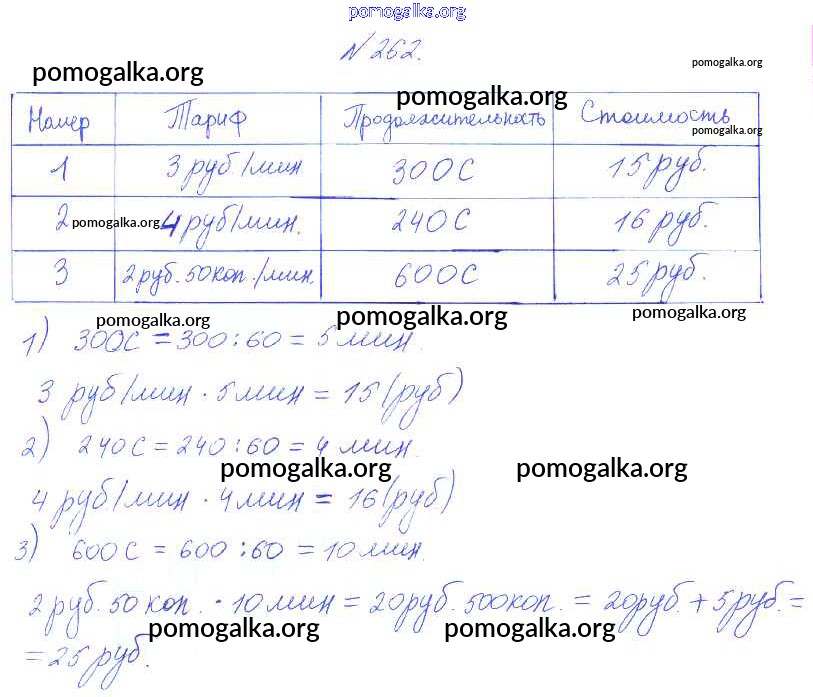 pomogalka.org
№262.
pomogalka.org
pomogalka.org
pomogalka.org
Номер Тариф Продолжительность Стоимость
pomogalka.org
1 3 руб./мин 300С 15 руб.
2 pomogalka.org 4 руб/мин. 240С 16 руб.
pomogalka.org
3 2 руб. 50 коп./мин. 600С 25 руб.
pomogalka.org pomogalka.org pomogalka.org
1) 300С = 300 : 60 = 5 мин.
3 руб/мин · 5 мин = 15 (руб)
2) 240С = 240 : 60 = 4 мин.
pomogalka.org pomogalka.org
4 руб/мин · 4 мин = 16 (руб)
3) 600С = 600 : 60 = 10 мин.
2 руб. 50 коп. · 10 мин = 20 руб. 500 коп. = 20 руб. + 5 руб. =
pomogalka.org pomogalka.org
= 25 руб.